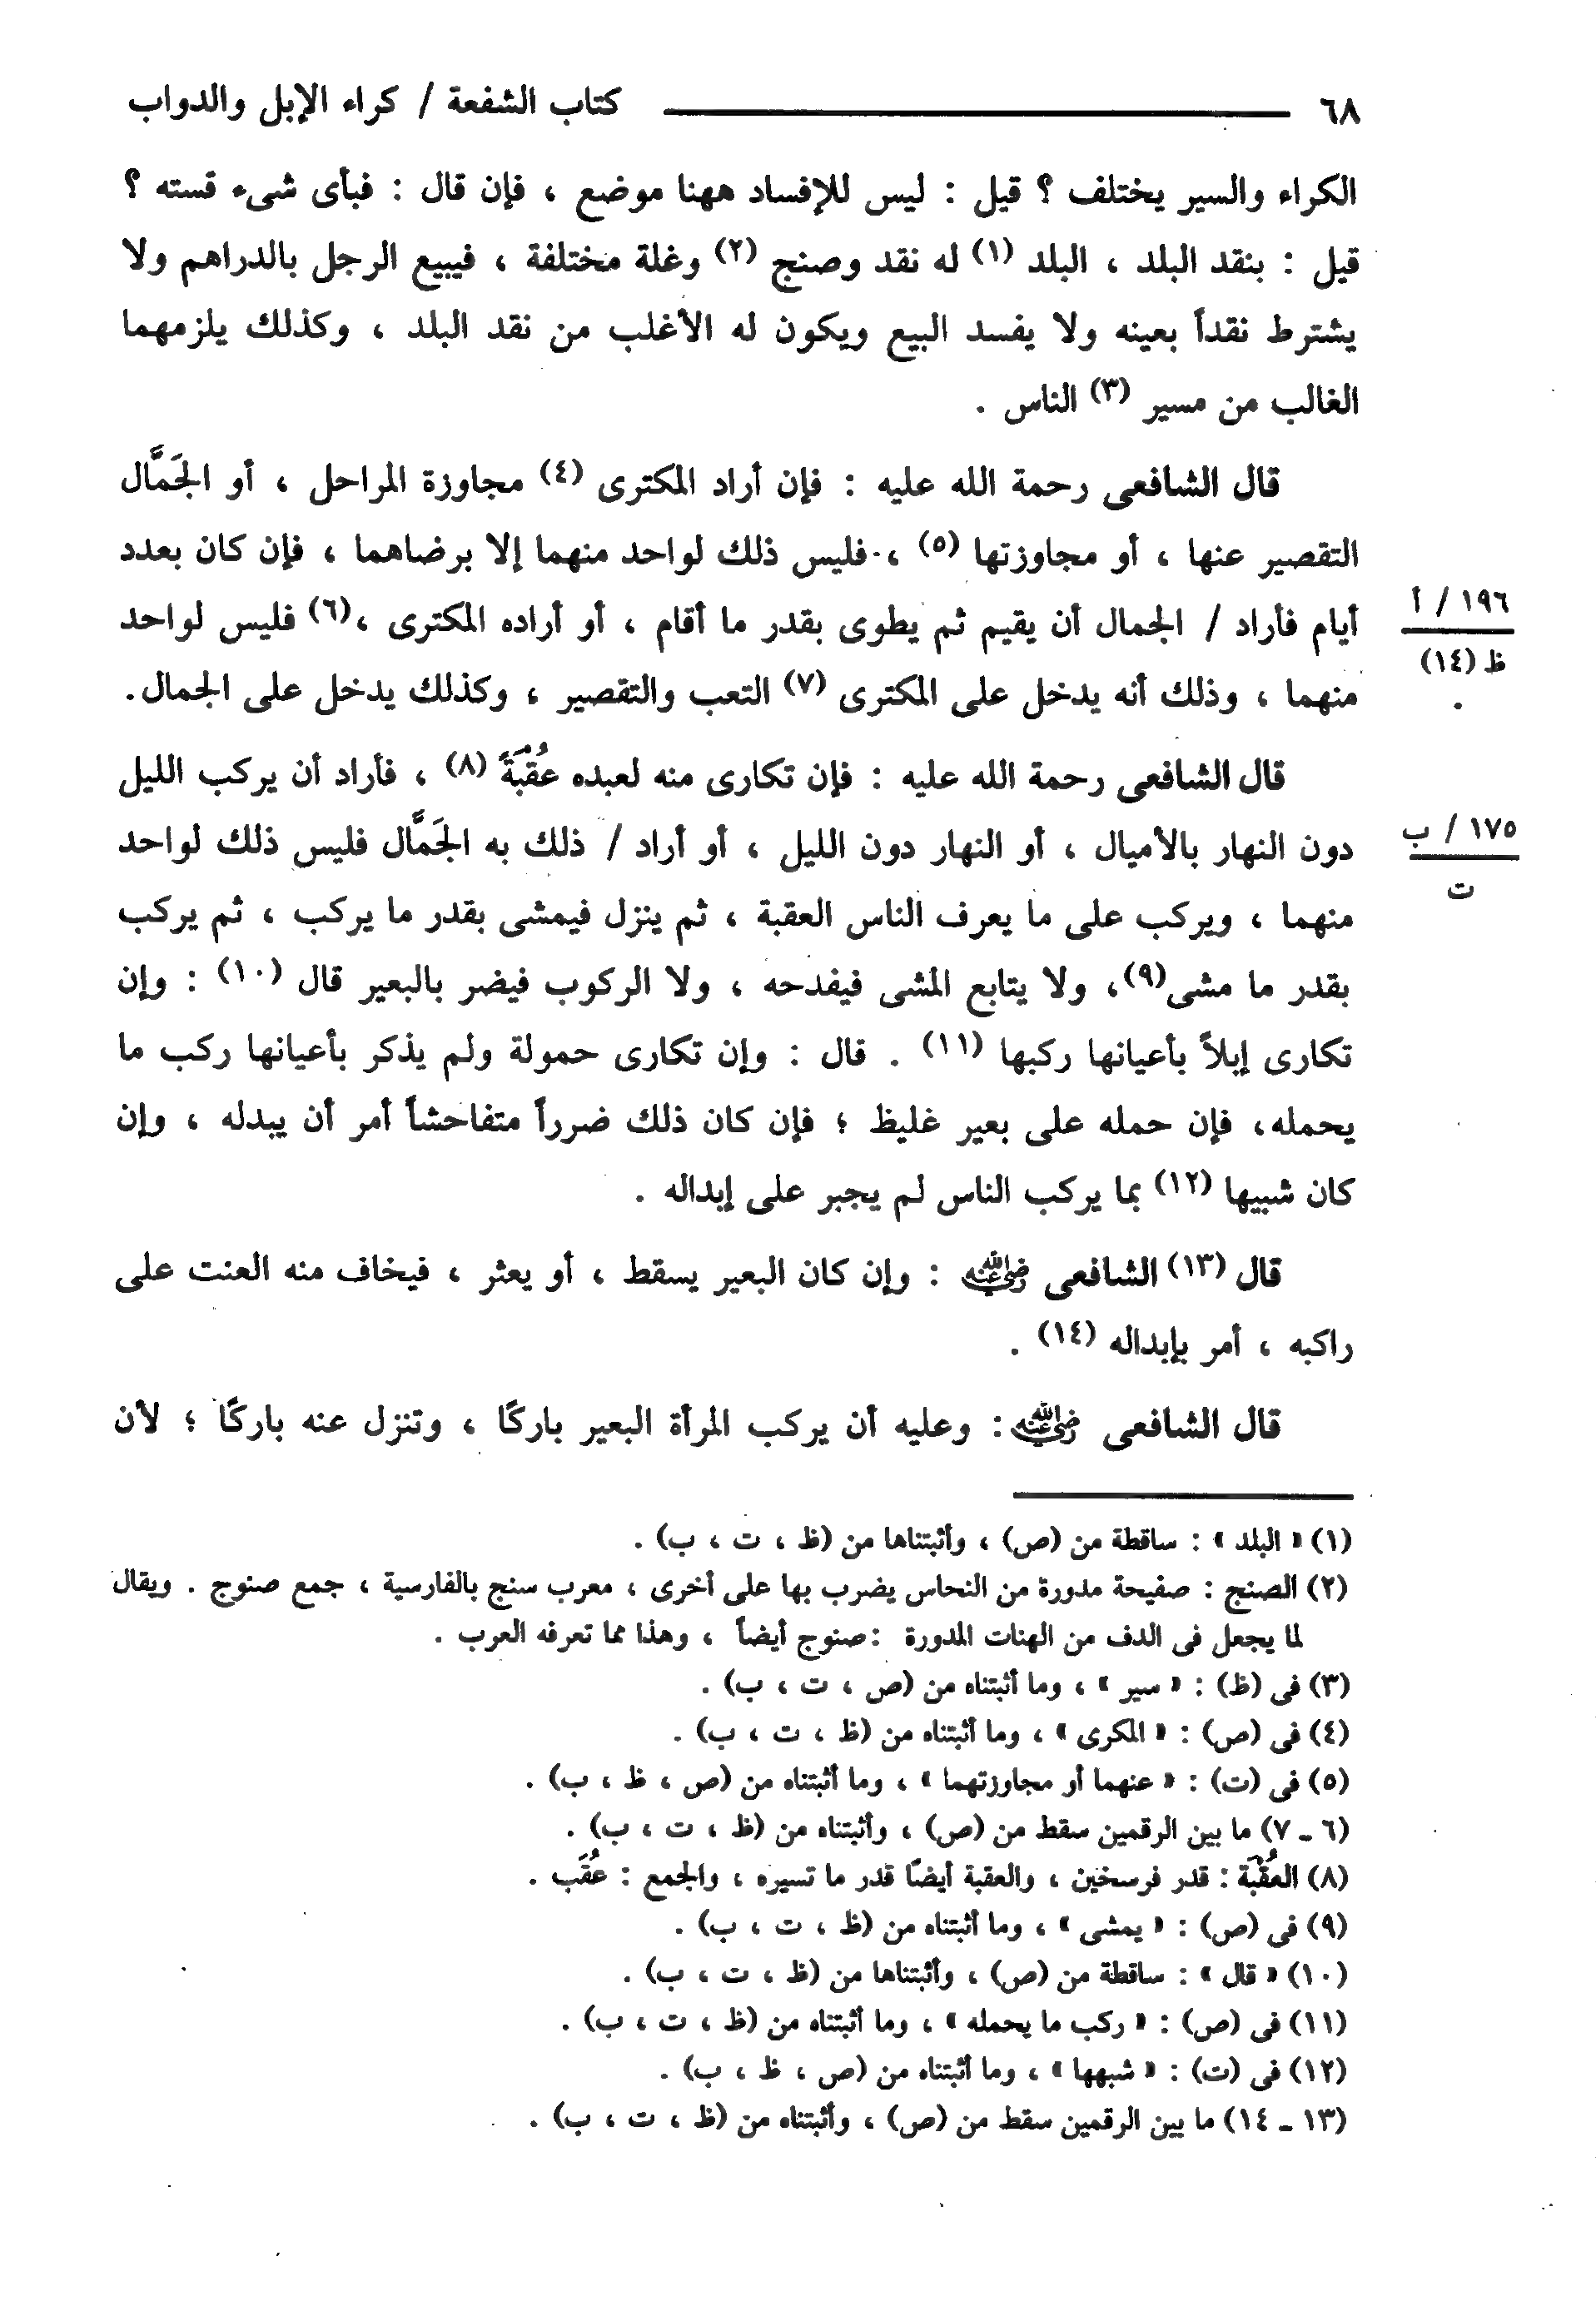 ٦٨ كتاب الشفعة / كراء الإبل والدواب
الكراء والسير يختلف ؟ قيل : ليس للإفساد ههنا موضع ، فإن قال : فبأى شىء قسته ؟
قيل : بنقد البلد ، البلد (١) له نقد وصنج (٢) وغلة مختلفة ، فيبيع الرجل بالدراهم ولا
يشترط نقداً بعينه ولا يفسد البيع ويكون له الأغلب من نقد البلد ، وكذلك يلزمهما
الغالب من مسير (٣) الناس .
قال الشافعى رحمة الله عليه : فإن أراد المكترى (٤) مجاوزة المراحل ، أو الجَمَّال
التقصير عنها ، أو مجاوزتها (٥) ، فليس ذلك لواحد منهما إلا برضاهما ، فإن كان بعدد
أيام فأراد / الجمال أن يقيم ثم يطوى بقدر ما أقام ، أو أراده المكترى ،(٦) فليس لواحد
١٩٦ / أ
ظ (١٤)
منهما ، وذلك أنه يدخل على المكترى (٧) التعب والتقصير ، وكذلك يدخل على الجمال.
قال الشافعى رحمة الله عليه : فإن تكارى منه لعبده عُقْبَةً (٨) ، فأراد أن يركب الليل
دون النهار بالأميال ، أو النهار دون الليل ، أو أراد / ذلك به الجَمَّال فليس ذلك لواحد
١٧٥ / ب
ت
منهما ، ويركب على ما يعرف الناس العقبة ، ثم ينزل فيمشى بقدر ما يركب ، ثم يركب
بقدر ما مشى(٩)، ولا يتابع المشى فيفدحه ، ولا الركوب فيضر بالبعير قال (١٠) : وإن
تكارى إبلاً بأعيانها ركبها (١١) . قال : وإن تكارى حمولة ولم يذكر بأعيانها ركب ما
يحمله، فإن حمله على بعير غليظ ؛ فإن كان ذلك ضرراً متفاحشاً أمر أن يبدله ، وإن
كان شبيها (١٢) بما يركب الناس لم يجبر على إبداله .
قال (١٣) الشافعى رضي الله عنه : وإن كان البعير يسقط ، أو يعثر ، فيخاف منه العنت على
راكبه ، أمر بإبداله (١٤) .
قال الشافعى رضي الله عنه : وعليه أن يركب المرأة البعير باركًا ، وتنزل عنه باركًا ؛ لأن
(١) « البلد » : ساقطة من (ص) ، وأثبتناها من (ظ ، ت ، ب) .
(٢) الصنج : صفيحة مدورة من النحاس يضرب بها على أخرى ، معرب سنج بالفارسية ، جمع صنوج . ويقال
لما يجعل فى الدف من الهنات المدورة :صنوج أيضاً ، وهذا مما تعرفه العرب .
(٣) فى (ظ) : « سير » ، وما أثبتناه من (ص ، ت ، ب) .
(٤) فى (ص) : « المكرى » ، وما أثبتناه من (ظ ، ت ، ب) .
(٥) فى (ت) : « عنهما أو مجاوزتهما » ، وما أثبتناه من (ص ، ظ ، ب) .
(٦ ـ ٧) ما بين الرقمين سقط من (ص) ، وأثبتناه من (ظ ، ت ، ب) .
(٨) العُقْبَة : قدر فرسخين ، والعقبة أيضًا قدر ما تسيره ، والجمع : عُقَب .
(٩) فى (ص) : « يمشى » ، وما أثبتناه من (ظ ، ت ، ب) .
(١٠) « قال » : ساقطة من (ص) ، وأثبتناها من (ظ ، ت ، ب) .
(١١) فى (ص) : « ركب ما يحمله » ، وما أثبتناه من (ظ ، ت ، ب) .
(١٢) فى (ت) : « شبهها » ، وما أثبتناه من (ص ، ظ ، ب) .
(١٣ ـ ١٤) ما بين الرقمين سقط من (ص) ، وأثبتناه من (ظ ، ت ، ب) .